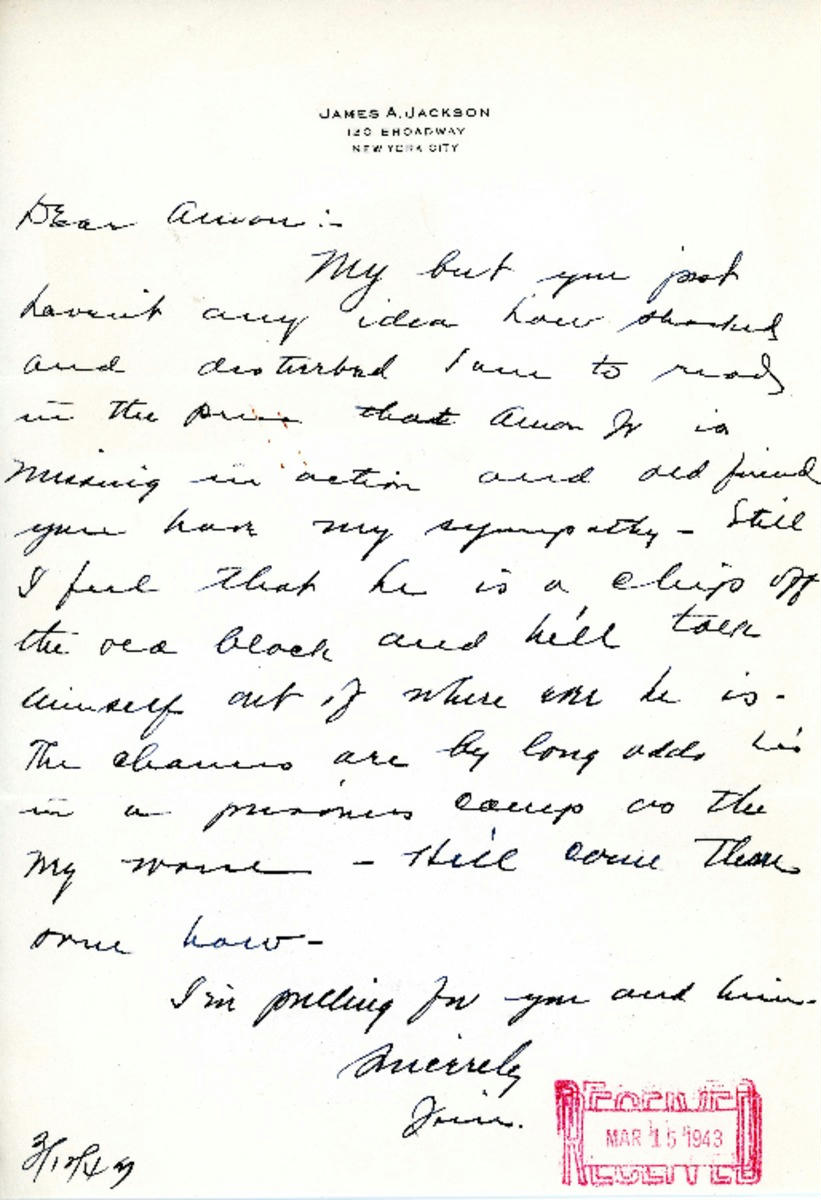 JAMES A. JACKSON
120 BROADWAY
NEW YORK CITY
Dear Amon:-
My but you just
haven't any idea how shocked
and disturbed I am to read
in the that Amon Jr is
missing in action and old friend
you have my sympathy - Still
I feel that he is a chip off
the old block and he'll talk
himself out of where ever he is -
The chances are by long odds he's
in a prisoners camp as the
my - He'll come thru
some how -
I'm pulling for you and him -
Sincerely
Jim.
3/12/43
RECEIVED
MAR 15 1943
RECEIVED